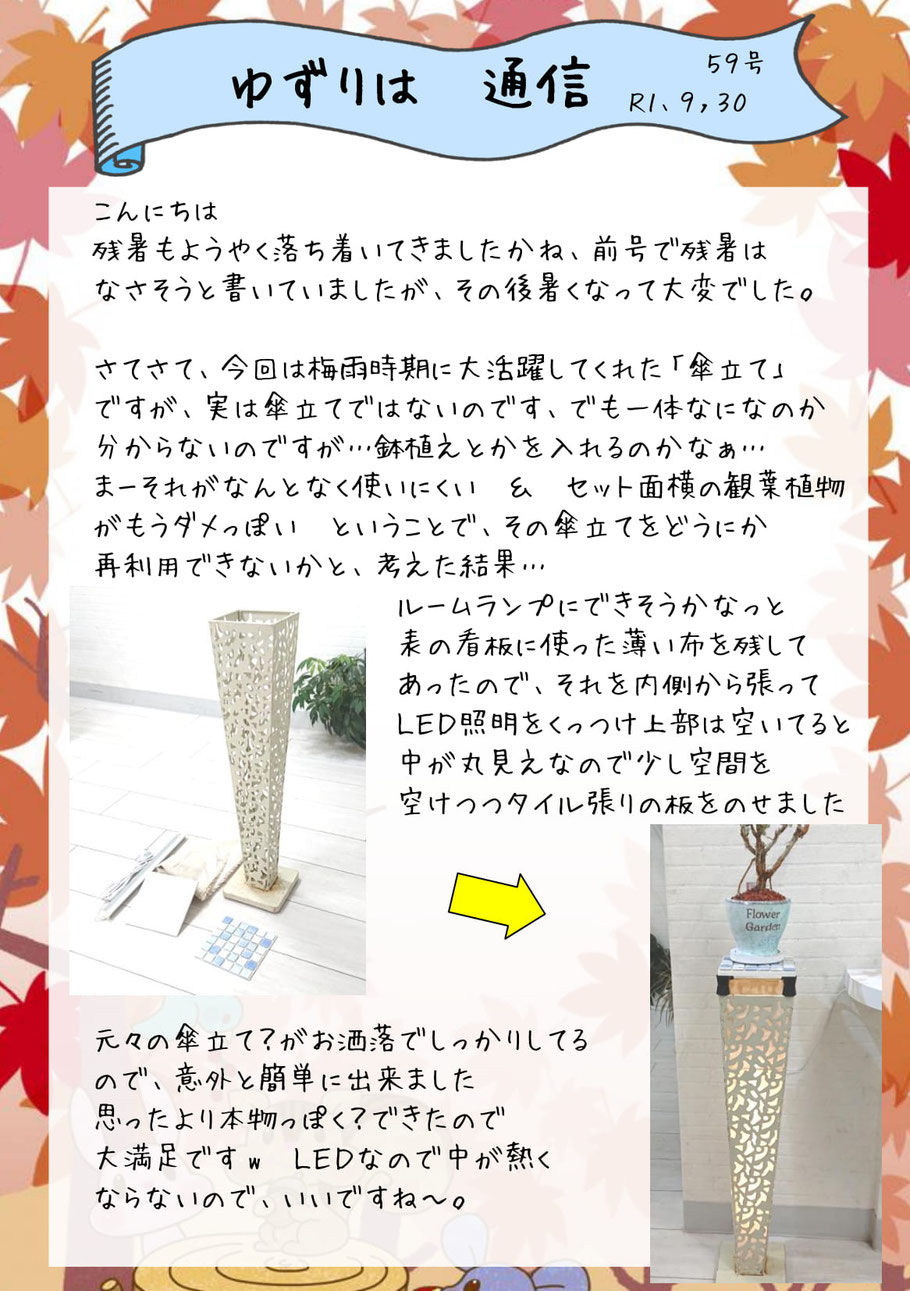 ゆずりは 通信
59号
R1、9,30
こんにちは
残暑もようやく落ち着いてきましたかね、前号で残暑は
なさそうと書いていましたが、その後暑くなって大変でした。
さてさて、今回は梅雨時期に大活躍してくれた「傘立て」
ですが、実は傘立てではないのです、でも一体なになのか
分からないのですが…鉢植えとかを入れるのかなぁ…
まーそれがなんとなく使いにくい & セット面横の観葉植物
がもうダメっぽい ということで、その傘立てをどうにか
再利用できないかと、考えた結果…
ルームランプにできそうかなっと
表の看板に使った薄い布を残して
あったので、それを内側から張って
LED照明をくっつけ上部は空いてると
中が丸見えなので少し空間を
空けつつタイル張りの板をのせました
Flower
Garden
元々の傘立て?がお洒落でしっかりしてる
ので、意外と簡単に出来ました
思ったより本物っぽく?できたので
大満足ですw LEDなので中が熱く
ならないので、いいですね～。